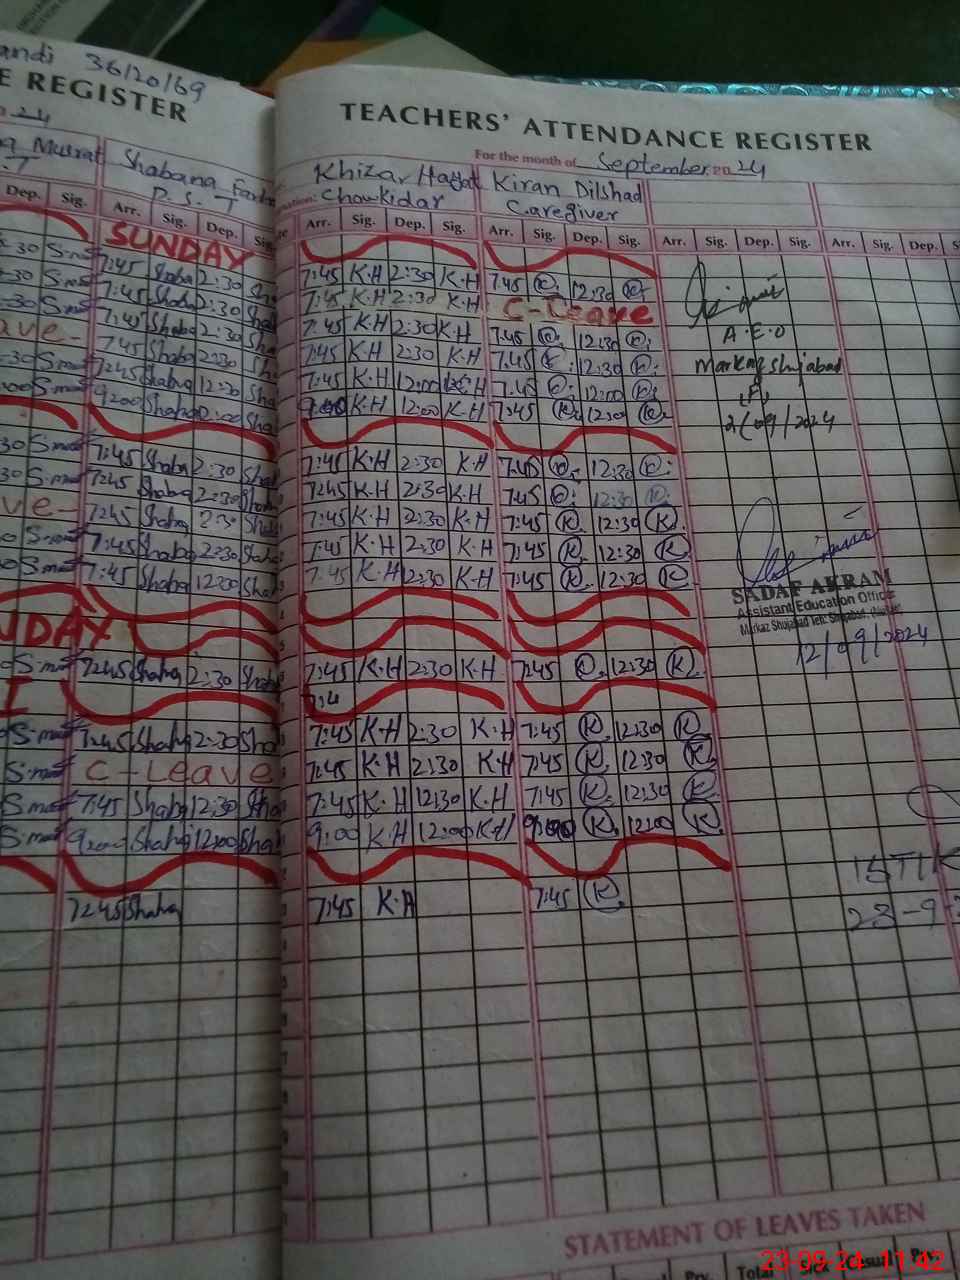 andi 36120169
E REGISTER
24
Musrat Shabana
P.S.T
Dep. Sig. Arr. Sig. Dep.
SUNDAY
7:45 Shaba 2:30 Sha
7:45 Shaba 2:30 Sha
7:45 Shaba 2:30 Sha
7:45 Shaba 2:30
7:45 Shaba 12:30 Sha
9:00 Shaba 12:00 Sha
7:45 Shaba 2:30
7:45 Shaba 2:30
7:45 Shaba 2:30
7:45 Shaba 2:30
7:45 Shaba 12:00 Sha
NDAY
7:45 Shaba 2:30
7:45 Shaba 2:30 Sha
C-Leave
7:45 Shaba 12:30
9:00 Shaba 12:00 Sha
7:45 Shaba
TEACHERS' ATTENDANCE REGISTER
For the month of September 20 24
Khizar Hayat Kiran Dilshad
Chowkidar Caregiver
Arr. Sig. Dep. Sig. Arr. Sig. Dep. Sig. Arr. Sig. Dep. Sig. Arr. Sig. Dep.
7:45 K.H 2:30 K.H 7:45 K. 12:30 K.
7:45 K.H 2:30 K.H C-Leave
7:45 K.H 2:30 K.H 7:45 K. 12:30 K.
7:45 K.H 2:30 K.H 7:45 K. 12:30 K.
7:45 K.H 12:00 K.H 7:45 K. 12:00 K.
9:00 K.H 12:00 K.H 7:45 K. 12:00 K.
7:45 K.H 2:30 K.H 7:45 K. 12:30 K.
7:45 K.H 2:30 K.H 7:45 K. 12:30 K.
7:45 K.H 2:30 K.H 7:45 K. 12:30 K.
7:45 K.H 2:30 K.H 7:45 K. 12:30 K.
7:45 K.H 12:30 K.H 7:45 K. 12:30 K.
7:45 K.H 2:30 K.H 7:45 K. 12:30 K.
7:4
7:45 K.H 2:30 K.H 7:45 K. 12:30 K.
7:45 K.H 2:30 K.H 7:45 K. 12:30 K.
7:45 K.H 12:30 K.H 7:45 K. 12:30 K.
9:00 K.H 12:00 K.H 9:00 K. 12:00 K.
7:45 K.H 7:45 K.
A.E.O
Markaz Shujabad
2/09/2024
SADAF AKRAM
Assistant Education Officer
Markaz Shujabad Teh: Shujabad,
12/09/2024
23-9-2
STATEMENT OF LEAVES TAKEN
Total Sick Casual Prv.
23-09-24 11:42